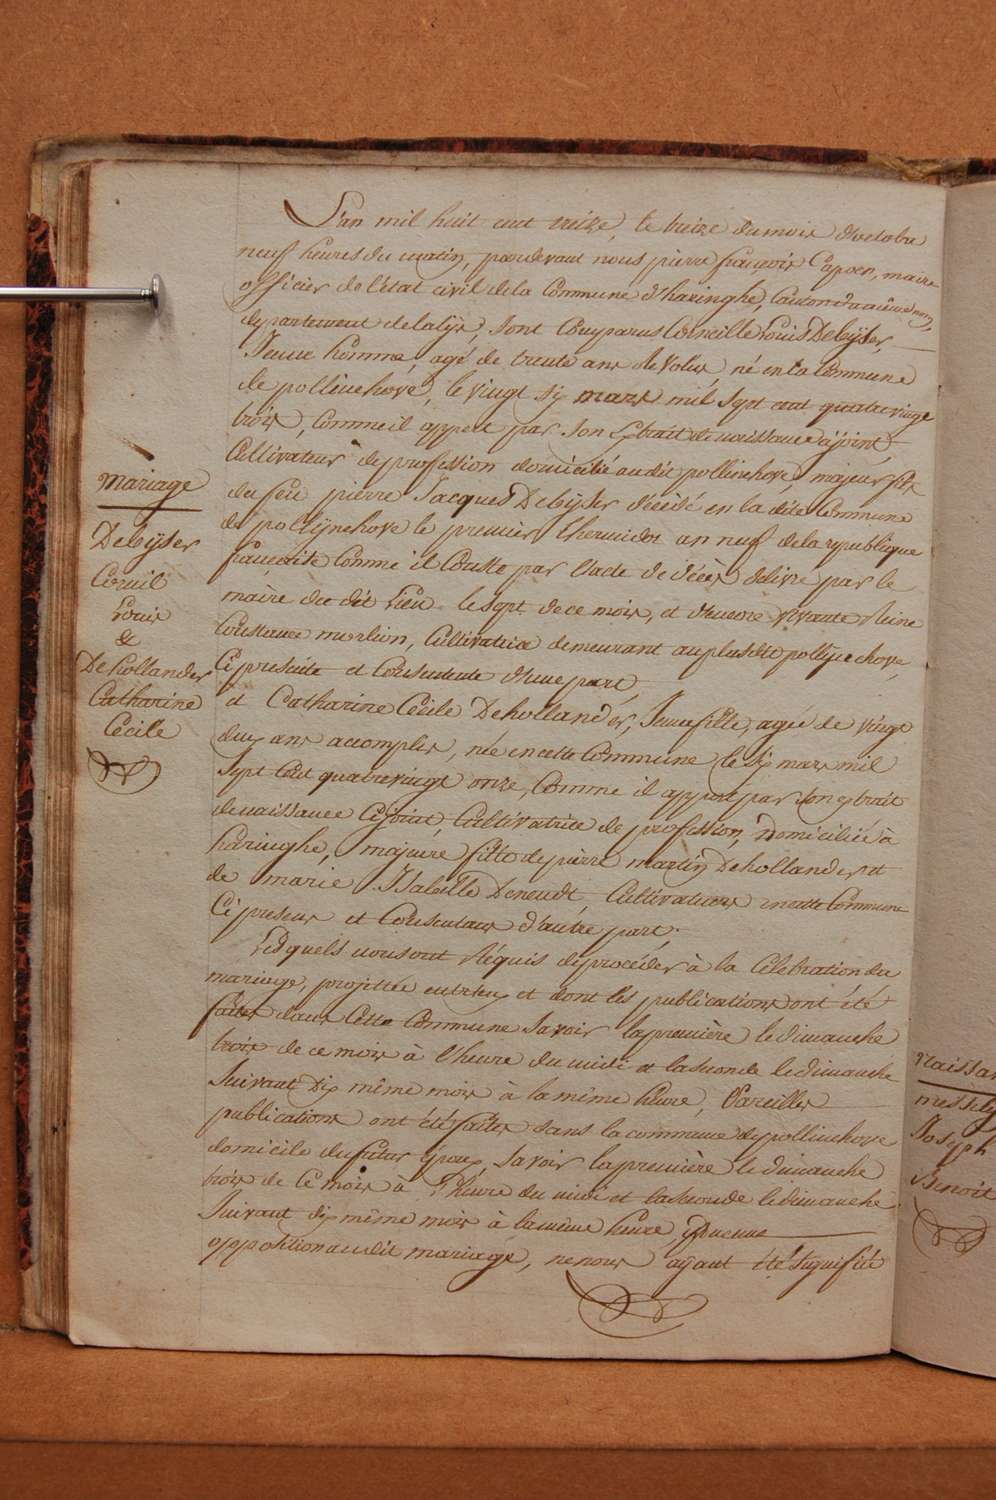 L'an mil huit cent treize, le treize du mois d'octobre
neuf heures du matin, pardevant nous pierre françois Capoen, maire
officier de l'état civil de la Commune d'haringhe, Canton du même nom,
departement de la lÿs, sont Comparus Corneille Louis Debÿser,
Jeune homme, agé de trente ans révolus, né en la Commune
de pollinchove, le vingt six mars mil sept cent quatre vingt
trois, Comme il appert par son Extrait de naissance cÿjoint,
Cultivateur de profession domicilié audit pollinchove, majeur fils
du feu pierre Jacques Debÿser décédé en la dite Commune
de pollÿnchove le premier thermidor an neuf de la republique
française Comme il Conste par l'acte de décès delivré par le
maire du dit Lieu le sept de ce mois, et d'encore vivante Reine
Constance merlion, Cultivatrice demeurant au plusdit pollÿnchove,
Ci presente et Consentente d'une part,
et Catharine Cécile Dehollander, Jeune fille, agée de vingt
deux ans accomplis, née en cette Commune le six mars mil
sept Cent quatre vingt onze, Comme il appert par son extrait
de naissance Cijoint, Cultivatrice de profession, Domiciliée à
haringhe, majeure fille de pierre martin Dehollander et
de marie Isabelle Deneudt Cultivateurs en cette Commune
Ci presens et Consentans d'autre part.
Lesquels nous ont réquis de procéder à la Célebration du
mariage, projettée entr'eux et dont les publications ont été
faites dans Cette Commune Savoir la première le dimanche
trois de ce mois à l'heure du midi et la seconde le dimanche
Suivant dix même mois à la même heure, Pareilles
publications ont été faites dans la commune de pollinchove
domicile du futur époux, Savoir la première le dimanche
trois de ce mois à l'heure du midi et la seconde le dimanche
Suivant dix même mois à la même heure, Aucune
opposition au dit mariage, ne nous aÿant été signifiée
mariage
Debÿser
Corneil
Louis
&
Dehollander
Catharine
Cécile
Naissan
Joseph
Benoit